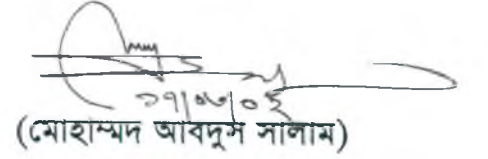 ১৭/০৬/০২
(মোহাম্মদ আবদুস সালাম)